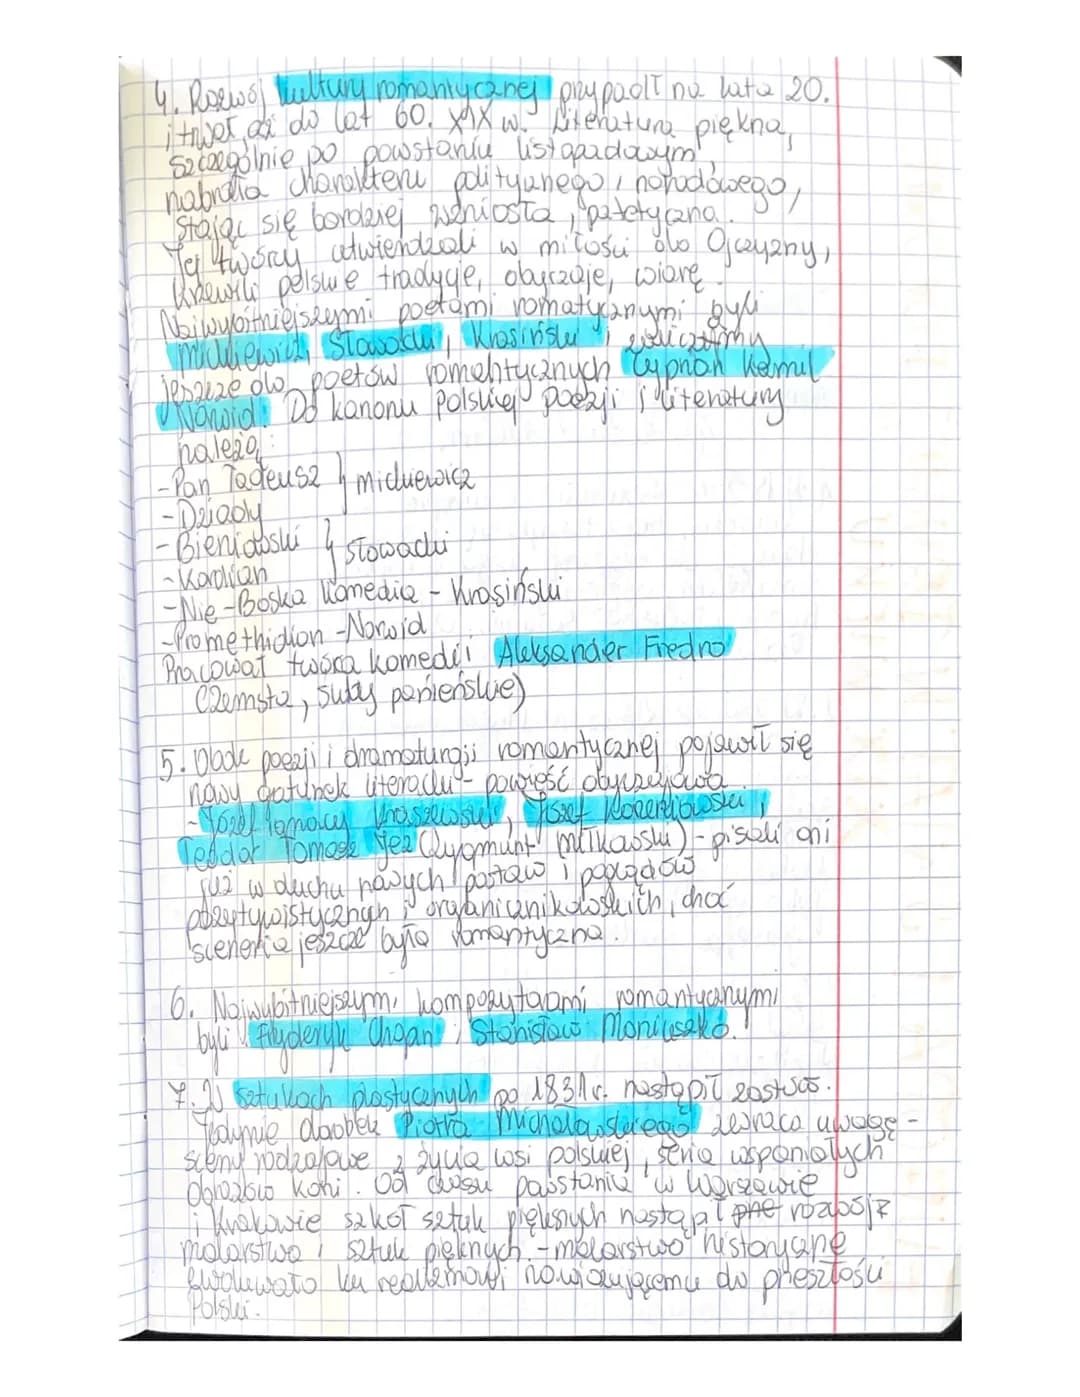 4. Rozwój kultury romantycznej przypadł na lata 20.
i trwał aż do lat 60. XIX w. Literatura piękna,
szczególnie po powstaniu listopadowym,
nabrała charakteru politycznego i narodowego,
stając się bardziej wzniosła, patetyczna.
Jej twórcy utwierdzali w miłości do Ojczyzny,
krzewili polskie tradycje, obyczaje, wiarę.
Najwybitniejszymi poetami romatycznymi byli
Mickiewicz, Słowacki, Krasiński i zaliczamy
jeszcze do poetów romantycznych Cyprian Kamil
Norwid. Do kanonu Polskiej poezji i literatury
należą:
- Pan Tadeusz } mickiewicz
- Dziady
- Bieniowski } Słowacki
- Kordian
- Nie-Boska Komedia - Krasiński
- Promethidion - Norwid
Pracował twórca komedii Aleksander Fredro
(Zemsta, śluby panieńskie)
5. Obok poezji i dramaturgii romantycznej pojawił się
nowy gatunek literacki - powieść obyczajowa
- Józef Ignacy Kraszewski, Józef Korzeniowski,
Teodor Tomasz Jeż (Zygmunt Miłkowski) - pisali oni
już w duchu nowych postaw i poglądów
pozytywistycznych i organicznikowskich, choć
sceneria jeszcze była romantyczna.
6. Najwybitniejszymi kompozytorami romantycznymi
byli: Fryderyk Chopin i Stanisław Moniuszko.
7. W sztukach plastycznych po 1831r. nastąpił zastój.
Jedynie dorobek Piotra Michałowskiego zwraca uwagę -
sceny rodzajowe z życia wsi polskiej, seria wspaniałych
obrazów koni. Od czasu powstania w Warszawie
i Krakowie szkół sztuk pięknych nastąpił rozwój
malarstwa i sztuk pięknych. - malarstwo historyczne
ewoluowało ku realizmowi nawiązującemu do przeszłości
Polski.